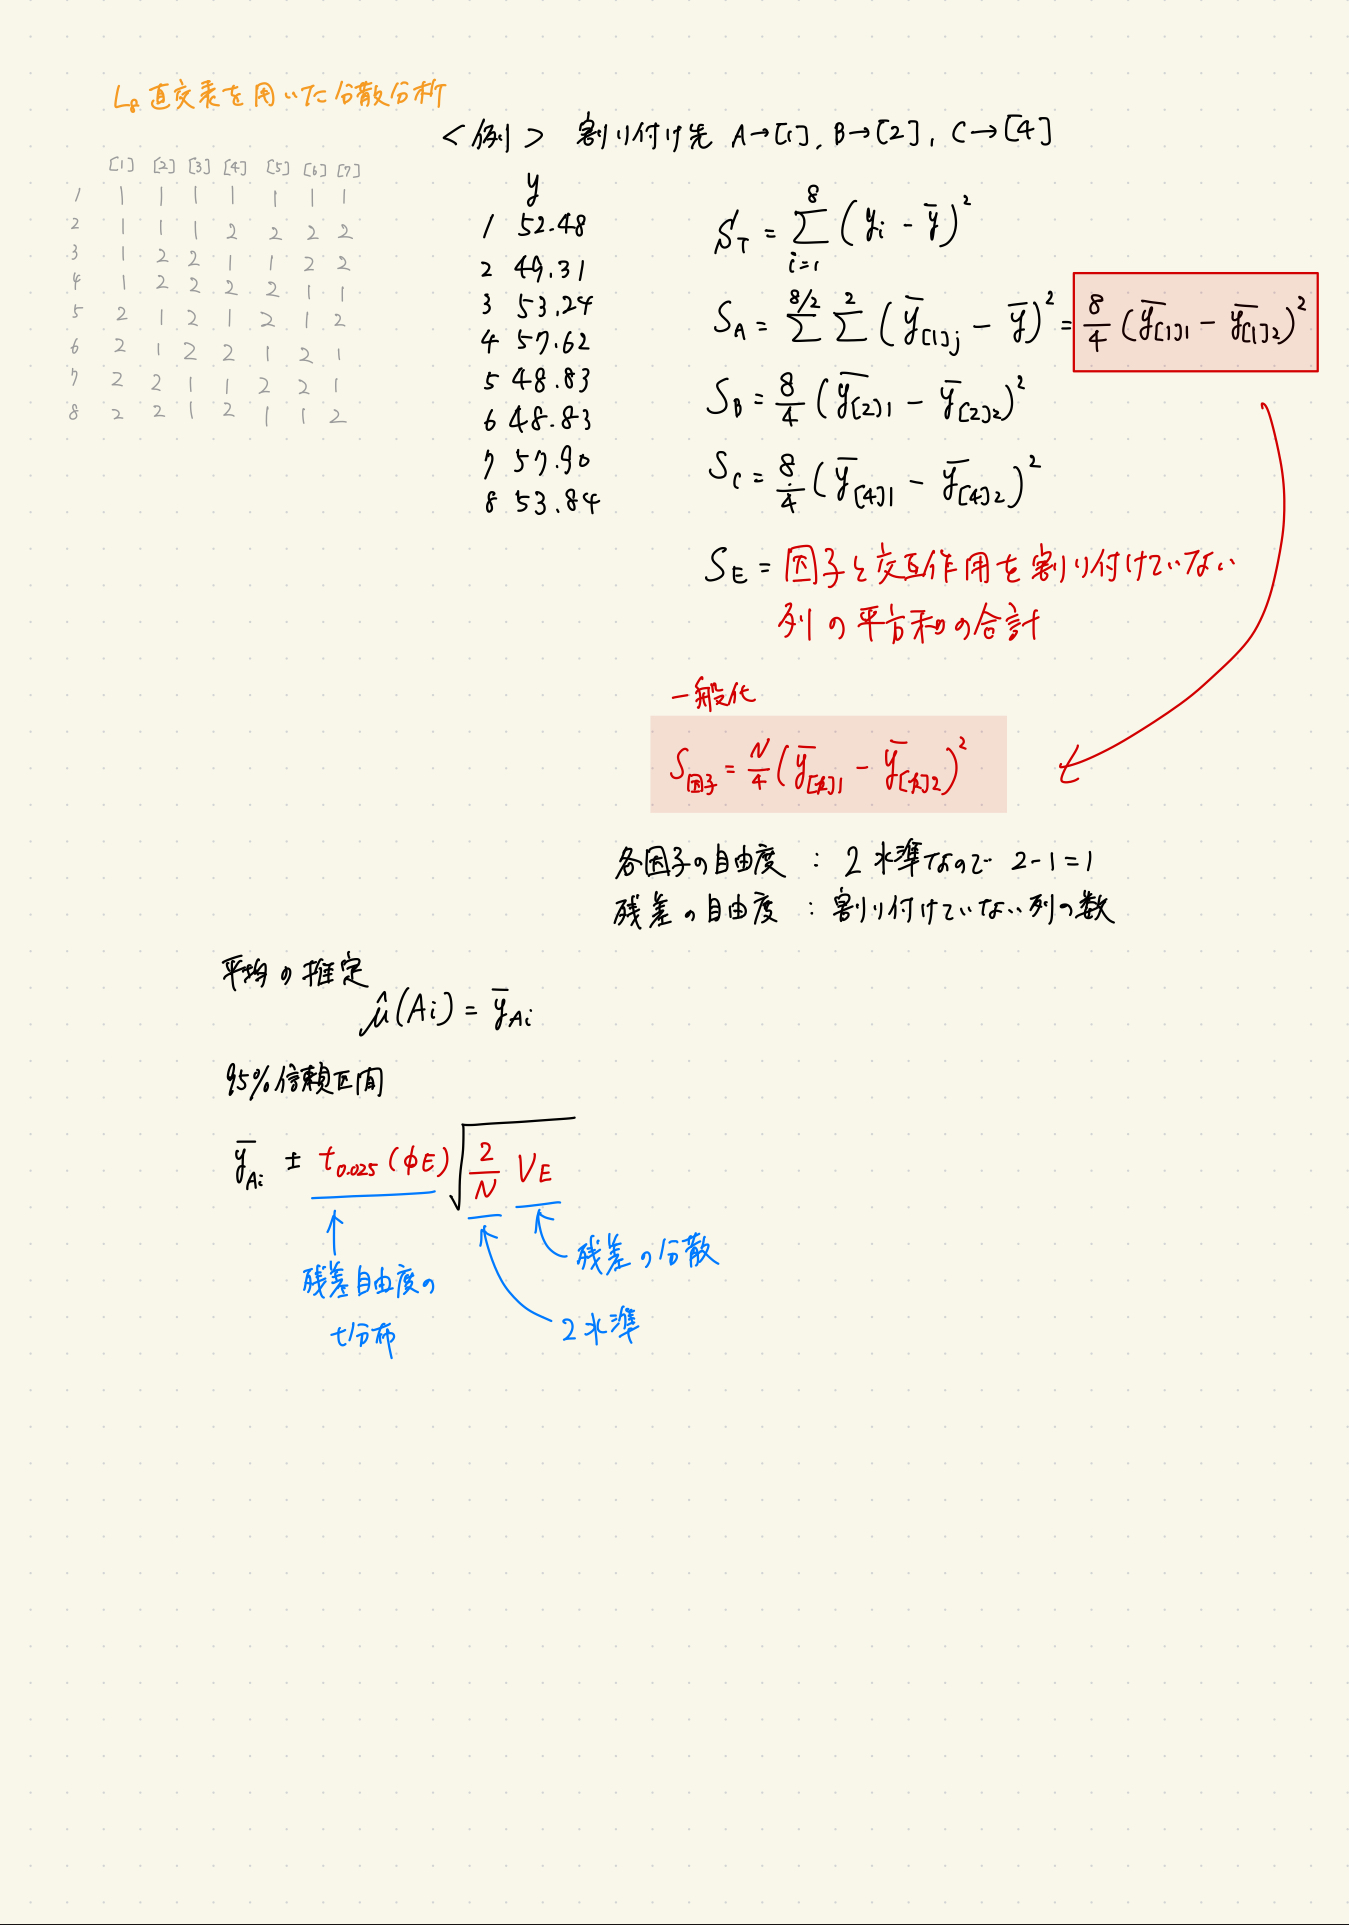 L8 直交表を用いた分散分析
<例> 割り付け先 A→[1], B→[2], C→[4]
[1] [2] [3] [4] [5] [6] [7]
1 1 1 1 1 1 1 1
2 1 1 1 2 2 2 2
3 1 2 2 1 1 2 2
4 1 2 2 2 2 1 1
5 2 1 2 1 2 1 2
6 2 1 2 2 1 2 1
7 2 2 1 1 2 2 1
8 2 2 1 2 1 1 2
y
1 52.48
2 49.31
3 53.24
4 57.62
5 48.83
6 48.83
7 57.90
8 53.84
S_T = Σ_{i=1}^{8} (y_i - ȳ)^2
S_A = Σ^{8/2} Σ^{2} (ȳ_{[1]j} - ȳ)^2 = 8/4 (ȳ_{[1]1} - ȳ_{[1]2})^2
S_B = 8/4 (ȳ_{[2]1} - ȳ_{[2]2})^2
S_C = 8/4 (ȳ_{[4]1} - ȳ_{[4]2})^2
S_E = 因子と交互作用を割り付けていない
列の平方和の合計
一般化
S_因子 = N/4 (ȳ_{[k]1} - ȳ_{[k]2})^2
各因子の自由度 : 2水準なので 2-1=1
残差の自由度 : 割り付けていない列の数
平均の推定
μ̂(Ai) = ȳ_{Ai}
95%信頼区間
ȳ_{Ai} ± t_{0.025}(φE) √(2/N V_E)
残差の分散
残差自由度の
t分布
2水準